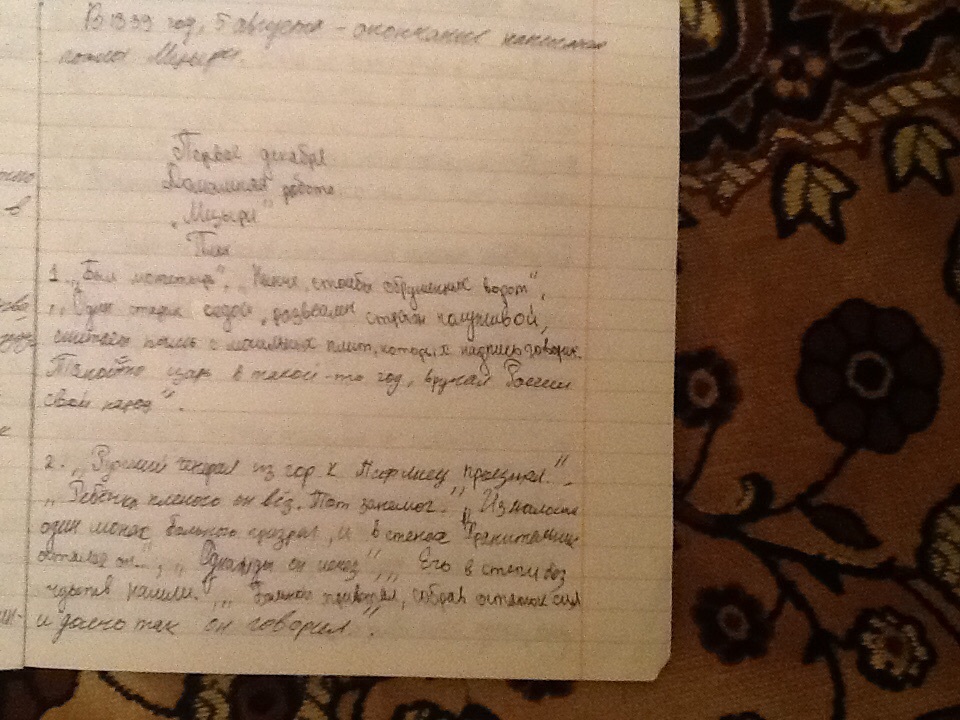 В 1839 год, 5 августа - окончание написания
поэмы Мцыри.
Первое декабря
Домашняя работа
„Мцыри"
План
1. „Был монастырь", столбы обрушенных ворот",
„Один старик седой, развалин страж полуживой,
сметает пыль с могильных плит, которых надпись говорит
царь в такой-то год, вручал России
свой народ".
2. „Русский генерал из гор к Тифлису проезжал".
„Ребёнка пленного он вёз. Тот занемог. „Из жалости
один монах больного призрел, и в стенах хранительных
остался он...", „Однажды он исчез", „Его в степи без
чувств нашли. „ собрав остаток сил
и долго так он говорил".